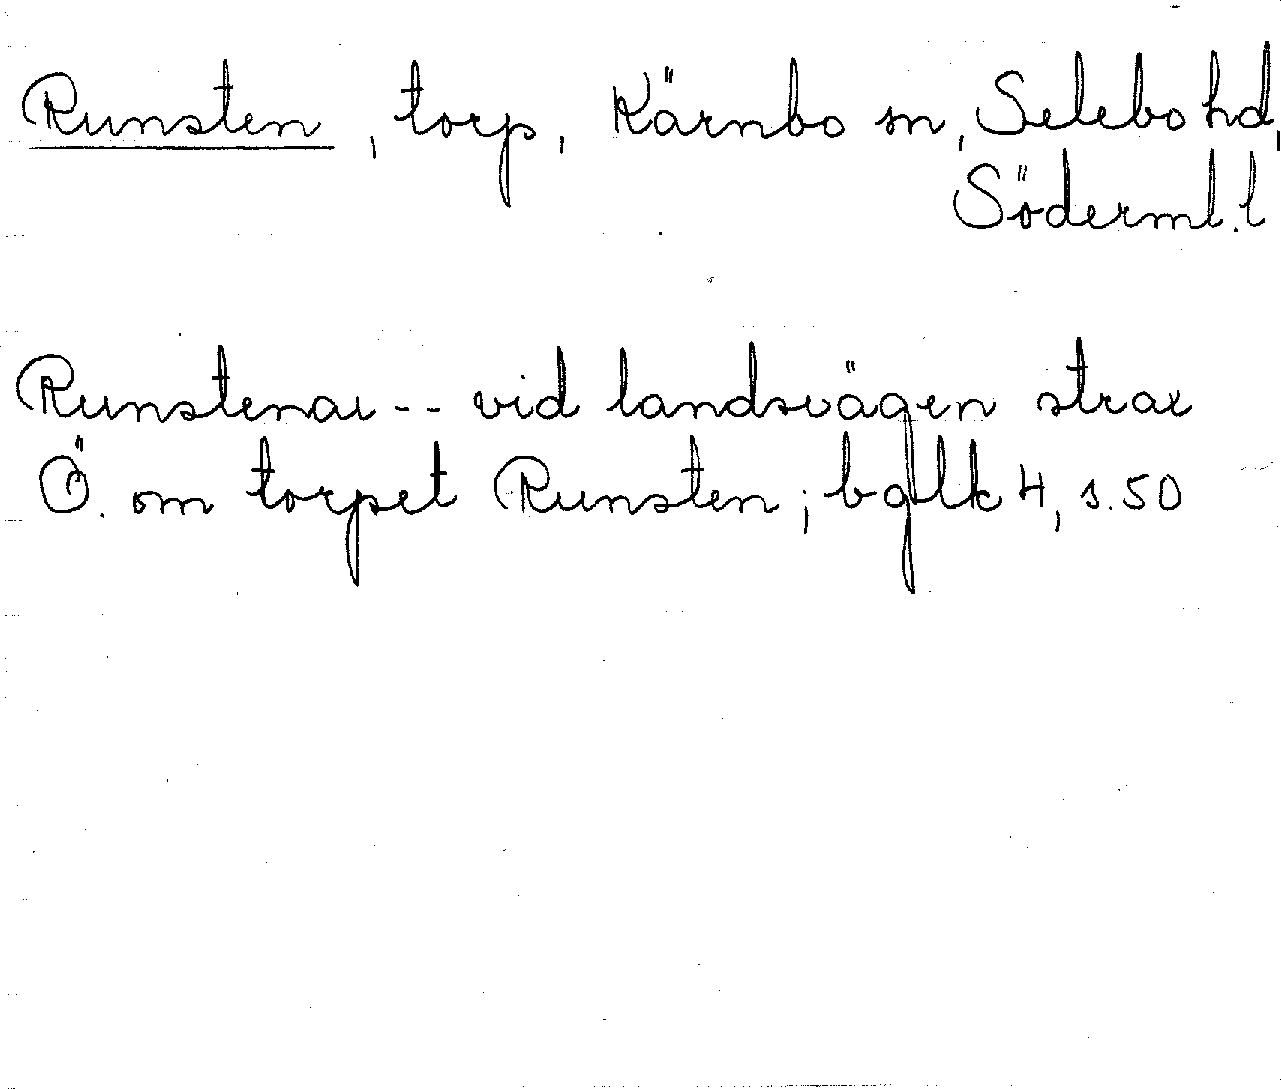 Runsten, torp, Kärnbo sn, Selebo hd,
Söderml. l
Runstenar -- vid landsvägen strax
Ö. om torpet Runsten; bglk 4, s. 50